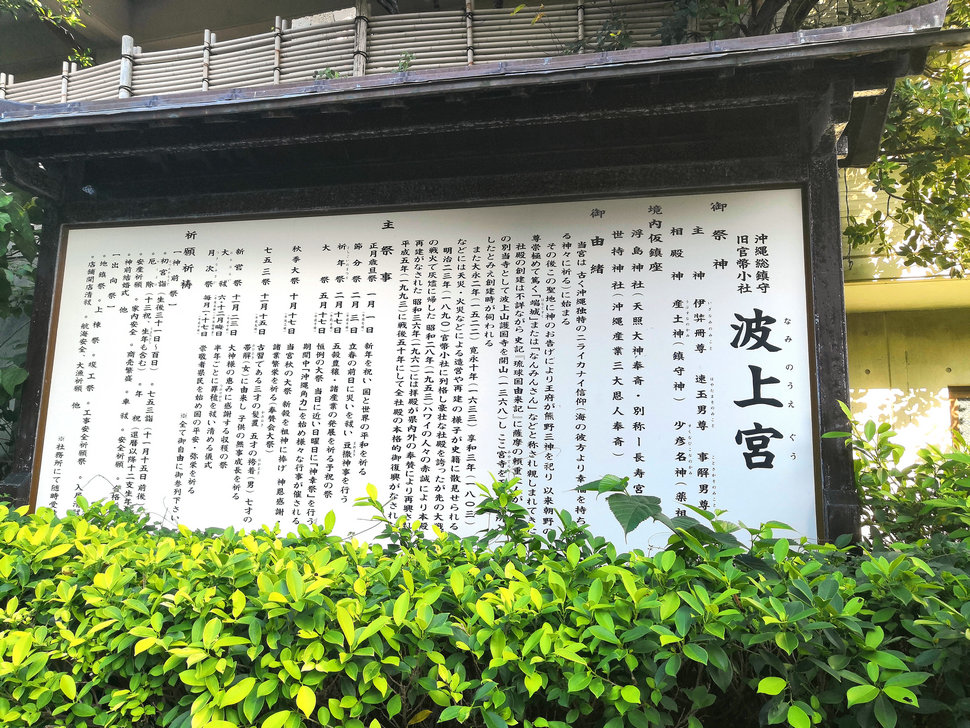 沖縄総鎮守
旧官幣小社
波上宮
なみのうえぐう
御祭神
主神 伊弉冊尊 速玉男尊 事解男尊
相殿神 産土神(鎮守神) 少彦名神(薬祖
境内仮鎮座
浮島神社(天照大神奉斎・別称ー長寿宮
世持神社(沖縄産業三大恩人奉斎)
御由緒
当宮は古く沖縄独特のニライカナイ信仰(海の彼方より幸福を持ち
る神々に祈る)に始まる
その後この聖地に神のお告げにより王府が熊野三神を祀り 以来朝野
尊崇極めて篤く「端城」または「なんみんさん」などと称され親しまれてき
社殿の創建は不詳ながら 史記『琉球国由来記』に薩摩の頼重
の別当寺として波上山護国寺を開山(一三六八)し ここ宮寺を
したとみえ創建時が伺われる
また大永二年(一五二二) 寛永十年(一六三三) 享和三年(一八〇三)
などには天災・火災などによる造営や再建の様子が史籍に散見せられる
明治二三年(一八九〇)官幣小社に列格し豪壮な社殿を誇ったが先の大戦
の戦火で烏墟に帰した 昭和二八年(一九五三)ハワイの人々の赤誠により本殿
再建めなされた 昭和三六年(一九六一)には拝殿が県内外の奉賛により再興
平成五年(一九九三)に戦後五十年にして全社殿の本格的御復興がなされ
主祭事
正月歳旦祭 一月一日 新年を祝い 国と世界の平和を祈る
節分祭 二月三日 立春の前日に災いを祓い、豆撒神事を行う
祈年祭 二月十七日 五穀豊穣・諸産業の発展を祈る予祝の祭
大祭 五月十七日 恒例の大祭 当日に近い日曜日に『神幸祭』を行う
期間中「沖縄角力」を始め様々な行事が催される
秋季大祭 十月十七日 当宮秋の大祭 新穀を祖神に捧げ 神恩感謝
諸業繁栄を祈る(奉賛会大祭)
七五三祭 十一月十五日 古習である三才の髪置 五才の袴着(男) 七才の
帯解(女)に由来し 子供の無事成長を祈る
新嘗祭 十一月二三日 大神様の恵みに感謝する収穫の祭
大祓 六・十二月晦日 半年ごとに罪穢を祓い清める儀式
月次祭 毎月一・十七日 崇敬者県民を始め国の平安・弥栄を祈る
※全て御自由に御参列下さい
祈願祈祷
一神前祭一
・初宮詣(生後三十一日・百日) ・七五三詣(十一月十五日前後
・厄除(十三祝・生年も含む) ・年祝(還暦以降十二支生年
・安産祈願 ・家内安全 ・商売繁盛 ・車祓 ・安全祈願
・神前結婚式 他
一出向祭一
・地鎮祭 ・上棟祭 ・竣工祭 ・工事安全祈願祭
・店舗開店清祓 ・航海安全、大漁祈願 他
※社務所にて随時